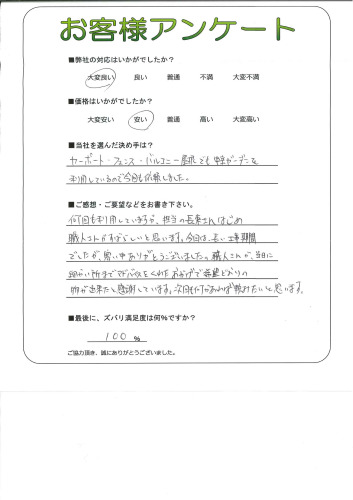 お客様アンケート
■弊社の対応はいかがでしたか?
大変良い 良い 普通 不満 大変不満
■価格はいかがでしたか?
大変安い 安い 普通 高い 大変高い
■当社を選んだ決め手は?
カーポート・フェンス・バルコニー屋根でも
利用しているので今回も依頼しました。
■ご感想・ご要望などをお書き下さい。
何回も利用していますが、担当の長束さんはじめ
職人さんがすばらしいと思います。今回は、長い工事期間
でしたが、寒い中ありがとうございました。職人さんが、当日に
細かい所までアドバイスをくれたおかげで希望どおりの
物が出来たと感謝しています。次回も何かあれば頼みたいと思います。
■最後に、ズバリ満足度は何%ですか?
100 %
ご協力頂き、誠にありがとうございました。